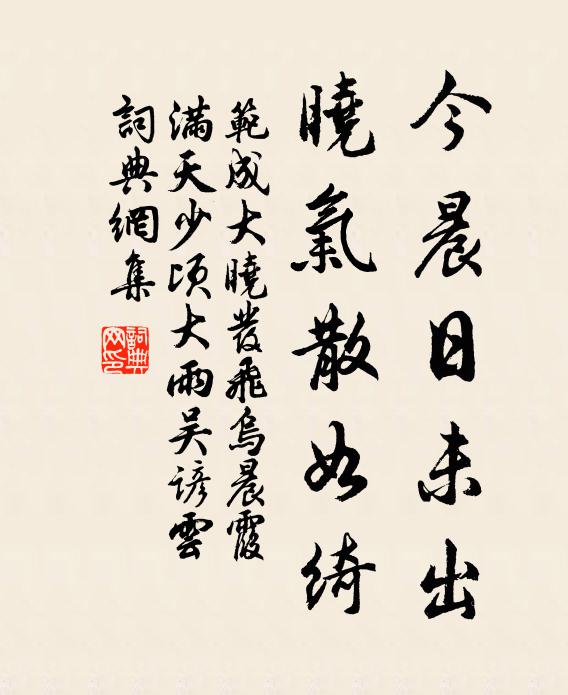 今晨日未出
曉氣散如綺
範成大曉發飛烏晨霞
滿天少頃大雨吴諺雲
詞典網集
詞典網印